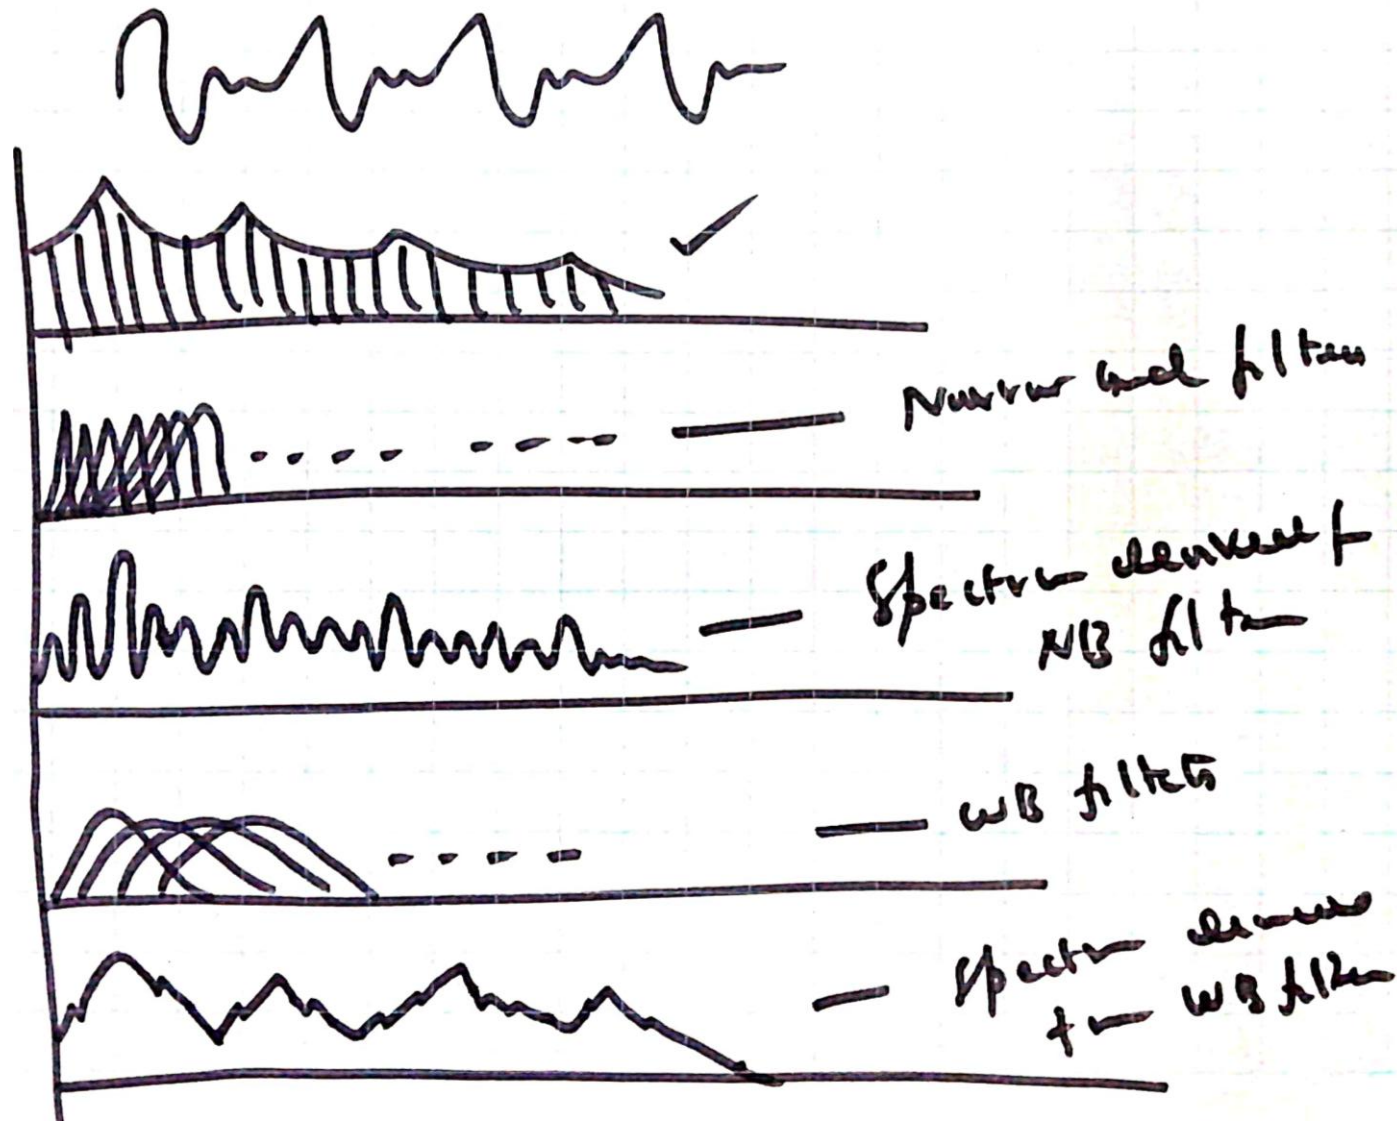 Narrow band filters
Spectrum derived f
NB filter
WB filters
Spectrum
WB filter